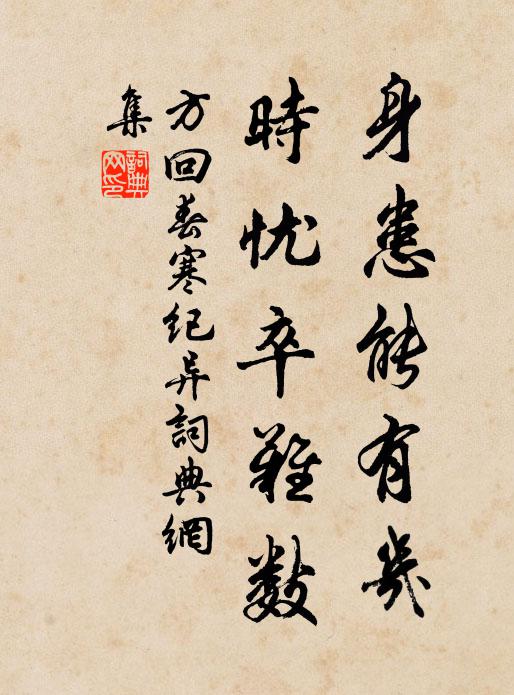 身患能有几
時忧卒難数
方回春寒纪异詞典網
集
詞典
网印